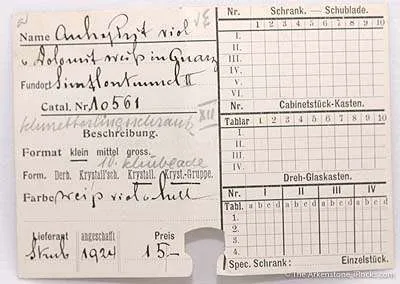 Name Anhydrit viol
u. Dolomit weiß in Quarz
Fundort Simplontunnel II
Catal. Nr. 10561
XII
Beschreibung.
Format klein mittel gross.
10. klinblade
Form. Derb. Krystall'sch. Krystall. Kryst.-Gruppe.
Farbe weiß viola hell
Lieferant angeschafft Preis
Strub 1924 15.-
Nr. Schrank. — Schublade.
1 2 3 4 5 6 7 8 9 10
I.
II.
III.
IV.
V.
Nr. Cabinetstück-Kasten.
Tablar 1 2 3 4 5 6 7 8 9 10
I.
II.
III.
Dreh-Glaskasten.
Nr. I II III IV
Tabl. a b c d a b c d a b c d a b c d
1.
2.
3.
4.
Spec. Schrank: Einzelstück.
© The Arkenstone, iRocks.com